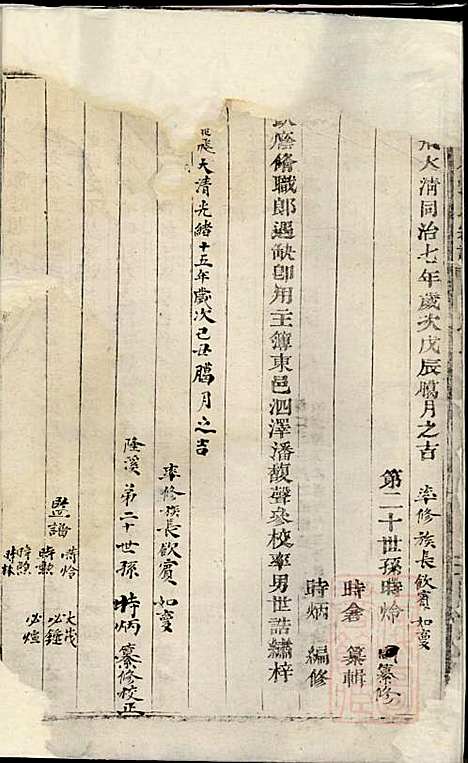 大清同治七年歲次戊辰臈月之吉 率修族長欽賓如夔
第二十世孫時焓 纂修
時倉 纂輯
時炳 編修
廕脩職郎遇缺卽用主簿東邑泗澤潘馥聲參校率男世誥繡梓
大清光緒十五年歲次己丑臈月之吉
率修族長欽賓如夔
隆溪第二十世孫時炳纂修校正
監譜
時焓 大茂
時勲 必鍾
時勲 必煊
時林